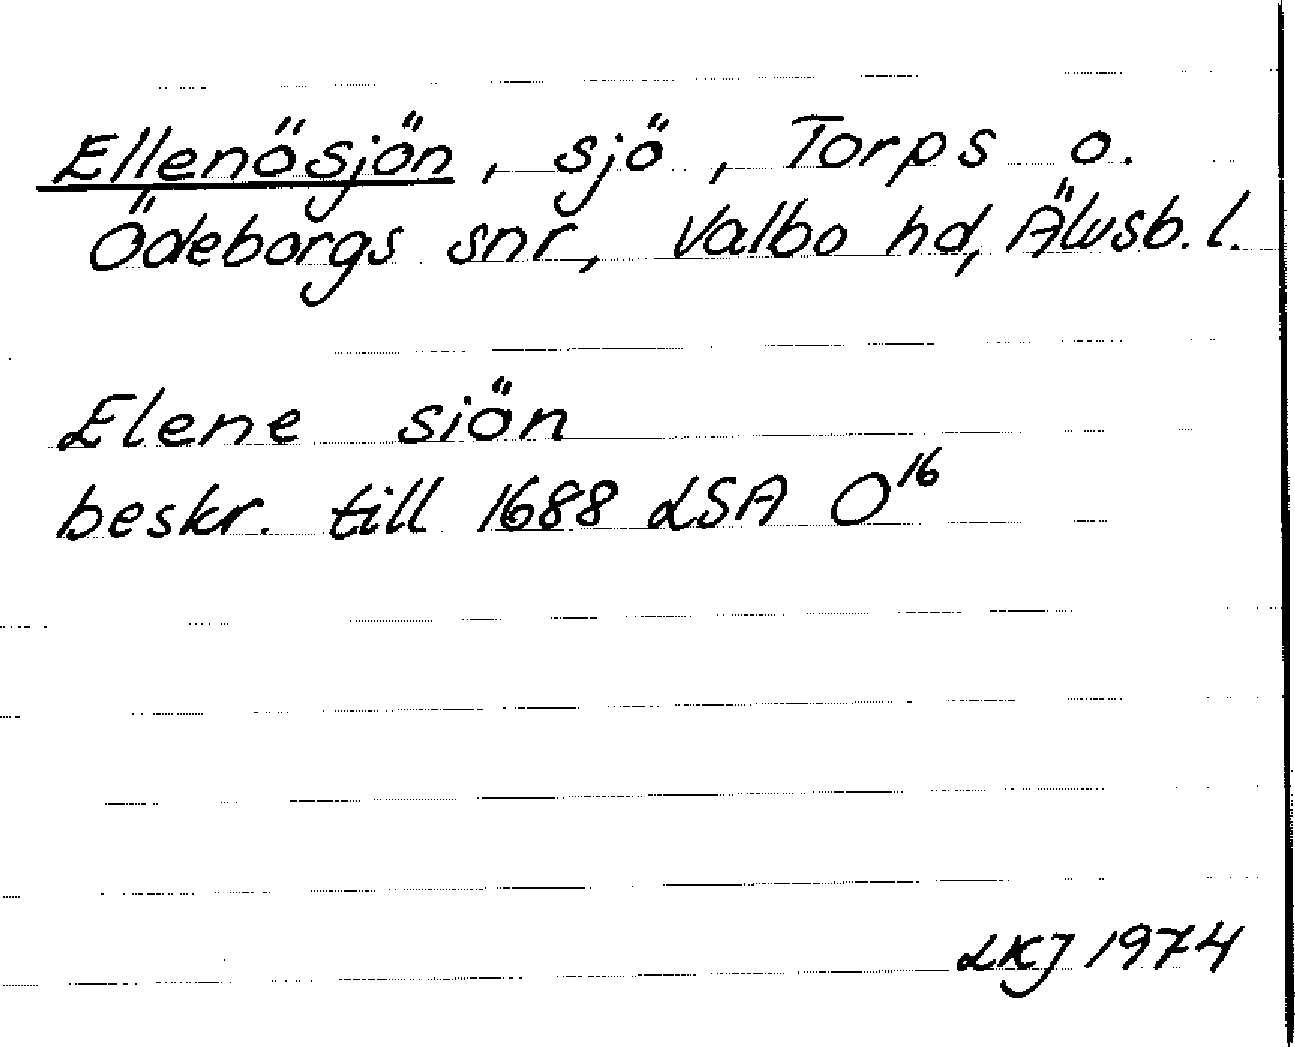 Ellenösjön, sjö, Torps o.
Ödeborgs snr, Valbo hd, Älvsb. l.
Elene siön
beskr. till 1688 LSA O16
LKJ 1974